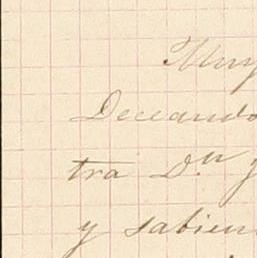 Muy
Deceando
tra D.n
y sabien